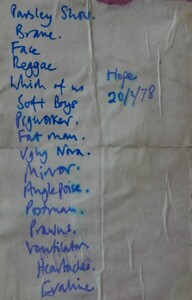 Parsley Show.
Brane.
Face
Reggae
Which of us
Soft Boys
Pigworker.
Fat man.
Ugly Nora.
Mirror.
Anglepoise.
Postman.
Prawns.
Ventilator
Heartache.
Evaline
Hope
20/7/78